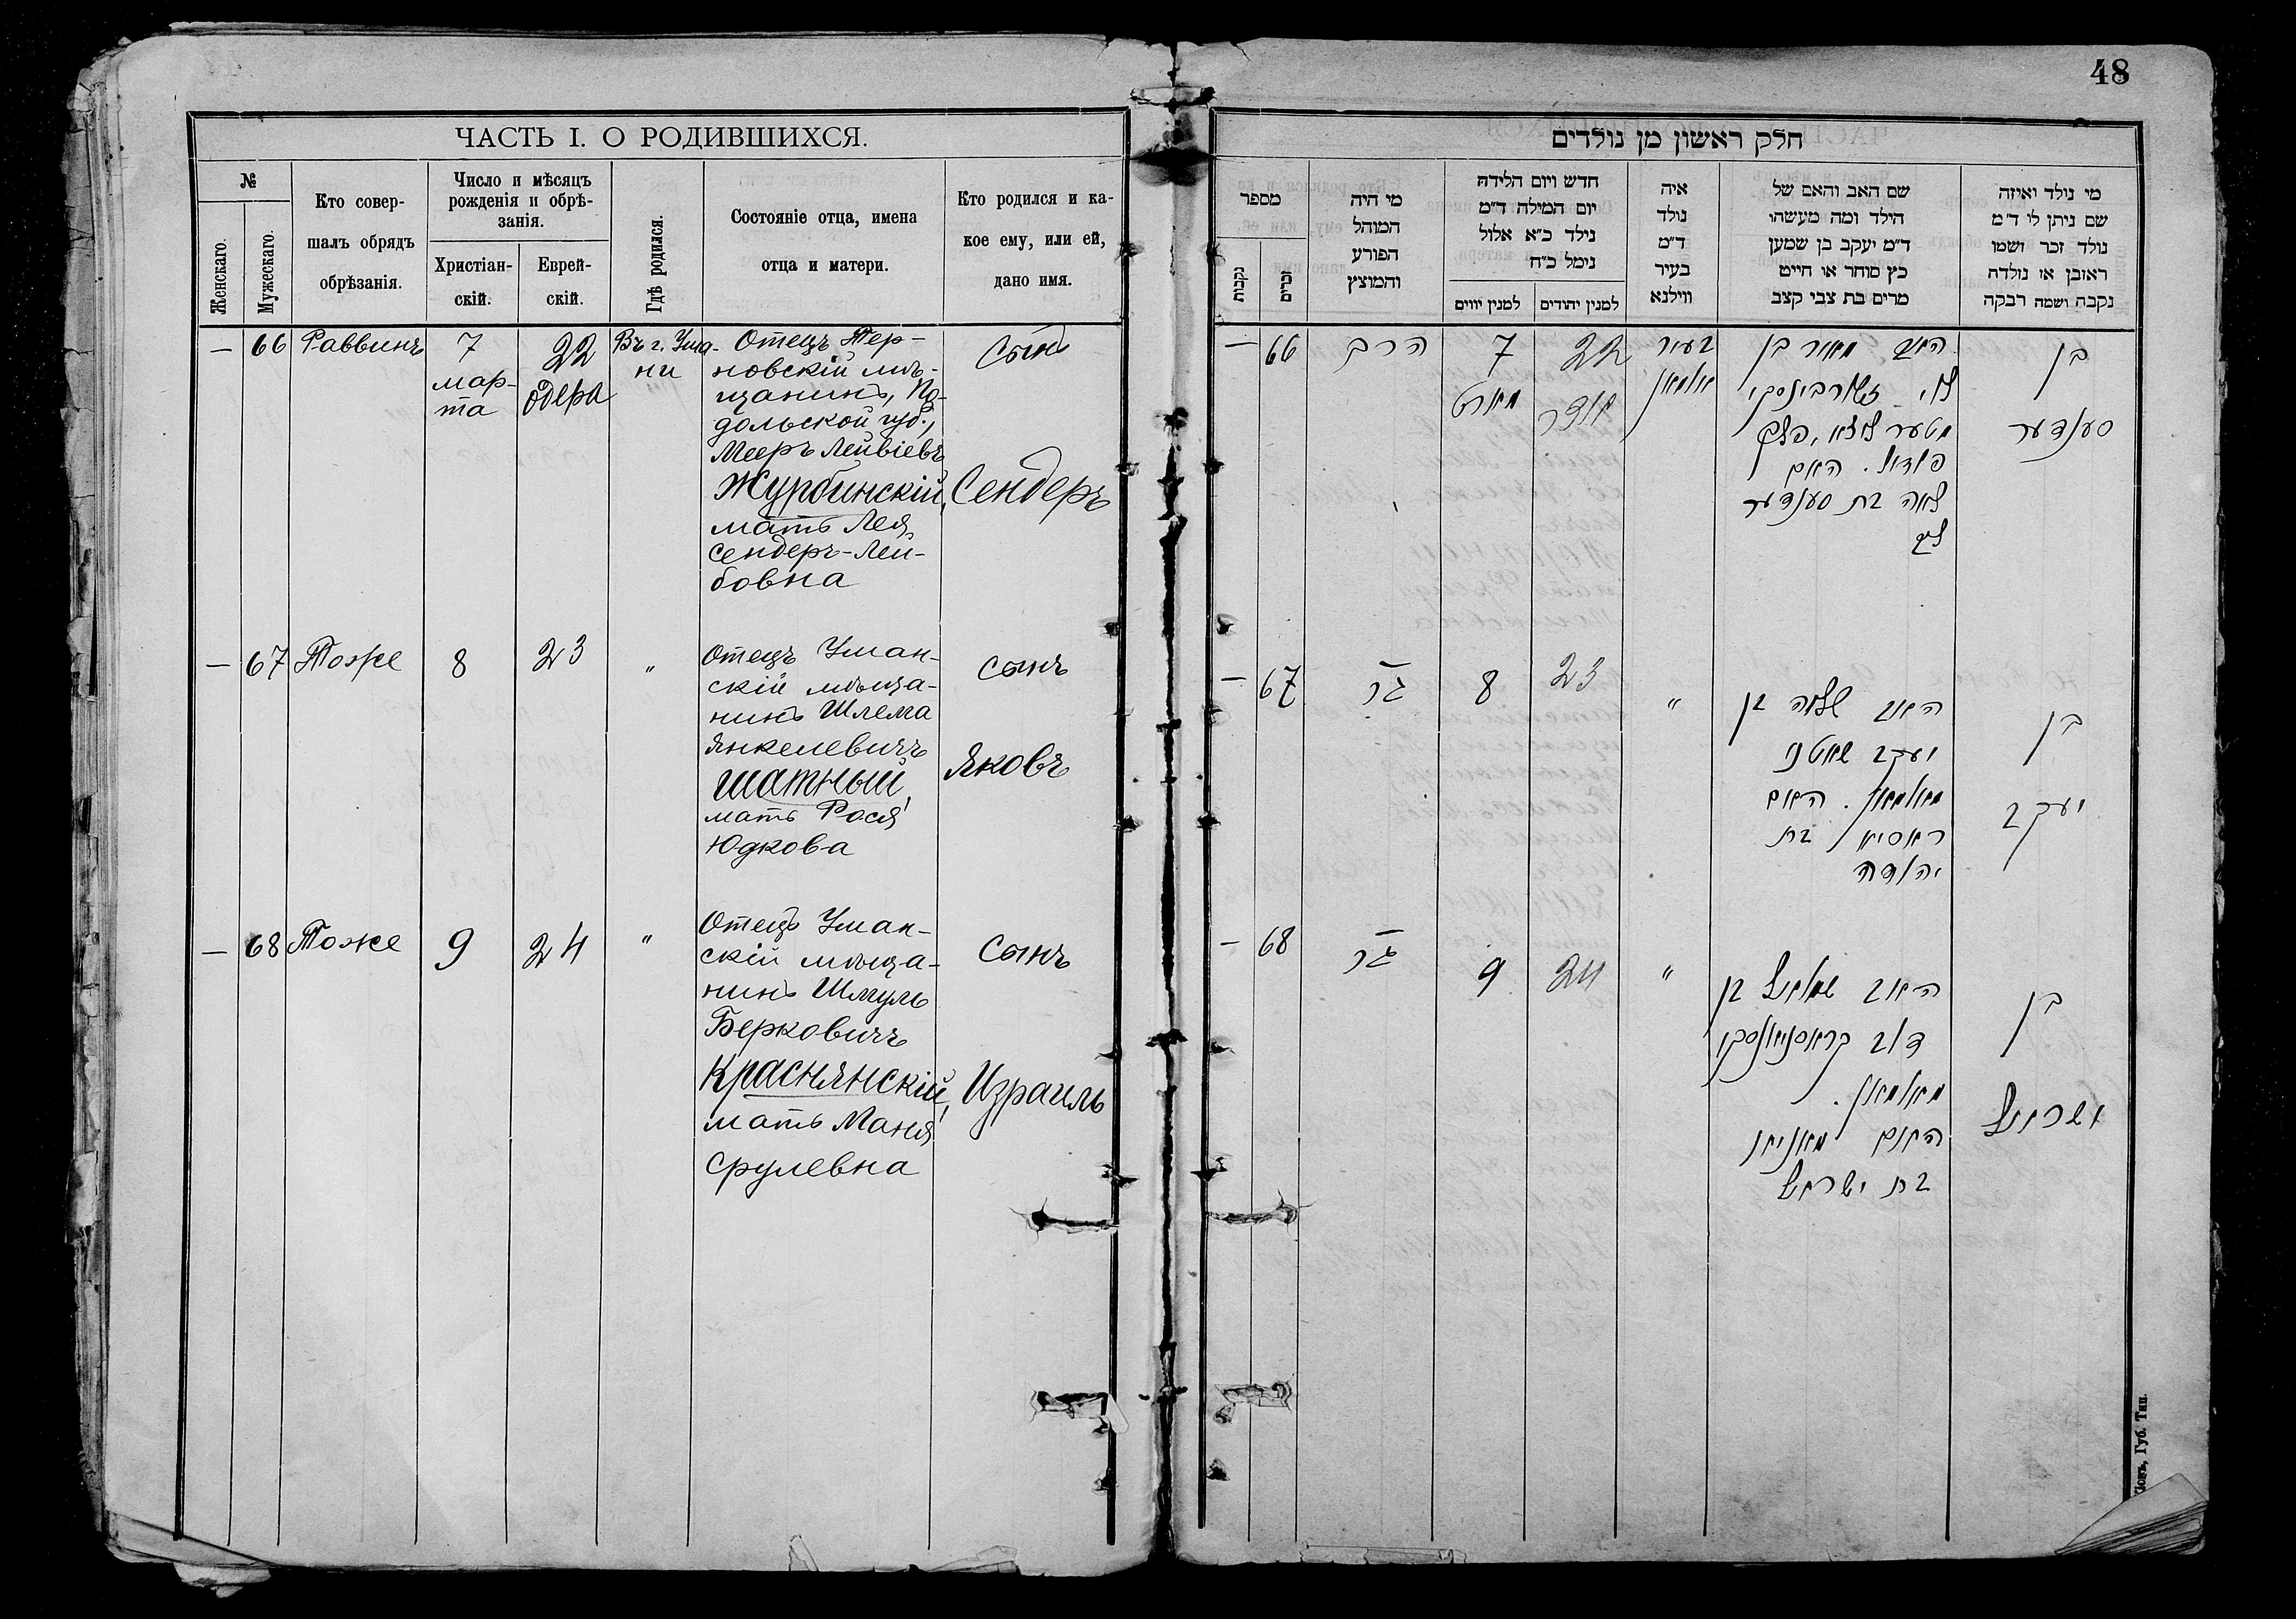 48
ЧАСТЬ I. О РОДИВШИХСЯ.
№
Женскаго.
Мужескаго.
Кто совер-
шалъ обрядъ
обрѣзанія.
Число и мѣсяцъ
рожденія и обрѣ-
занія.
Христіан-
скій.
Еврей-
скій.
Гдѣ родился.
Состояніе отца, имена
отца и матери.
Кто родился и ка-
кое ему, или ей,
дано имя.
— 66 Раввинъ
7
мар-
та
22
одера
Въ г. Ума-
ни
Отецъ Тер-
новскій мѣ-
щанинъ, По-
дольской губ.,
Мееръ Лейвіевъ
Журбинскій,
мать Лея
Сендеръ-Лей-
бовна
Сынъ
Сендеръ
— 67 Тоже 8 23 "
Отецъ Уман-
скій мѣща-
нинъ Шлема
Янкелевичъ
Шатный,
мать Рося
Юдкова
сынъ
Яковъ
— 68 Тоже 9 24 "
Отецъ Уман-
скій мѣща-
нинъ Шмуль
Берковичъ
Краснянскій,
мать Маня
Срулевна
Сынъ
Израиль
חלק ראשון מן נולדים
מי נולד ואיזה
שם ניתן לו ד״מ
נולד זכר ושמו
ראובן או נולדה
נקבה ושמה רבקה
שם האב והאם של
הילד ומה מעשהו
ד״מ יעקב בן שמען
כץ סוחר או חייט
מרים בת צבי קצב
איה
נולד
ד״מ
בעיר
ווילנא
חדש ויום הלידה
יום המילה ד״מ
נילד כ״א אלול
נימל כ״ח
למנין יהודים
למנין יווים
מי היה
המוהל
הפורע
והמוצץ
מספר
זכרים
נקבות
בן
סענדער
האב מאיר בן
לוי זשורבינסקי
פאדאל. האם
לאה בת סענדער
ליב
בעיר
אומאן
22
אדר
7
מארט
הרב
66 —
בן
יעקב
האב שלמה בן
יעקב שאטני
מאומאן. האם
ראסיא בת
יהודה
"
23
8
67 —
בן
ישראל
האב שמואל בן
דוב קראסניאנסקי
מאומאן.
האם מאניא
בת ישראל
"
24
9
68 —
Кіевъ, Губ. Тип.